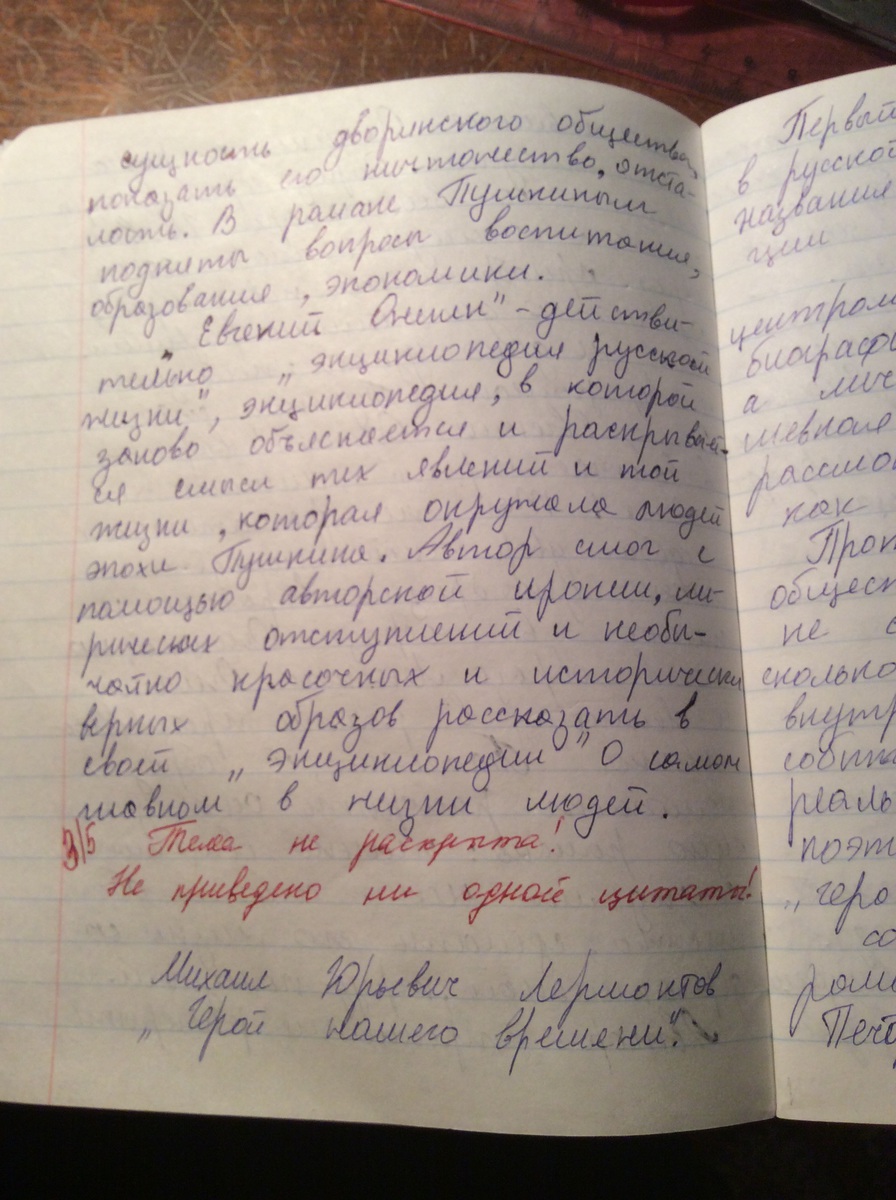 сущность дворянского общества,
показать его ничтожество, отста-
лость. В романе Пушкиным
подняты вопросы воспитания,
образования, экономики.
Евгений Онегин" - действи-
тельно „энциклопедия русской
жизни", энциклопедия, в которой
заново объясняется и раскрывает-
ся смысл тех явлений и той
жизни, которая окружала людей
эпохи Пушкина. Автор смог с
помощью авторской иронии, ли-
рических отступлений и необы-
чайно красочных и исторически
верных образов рассказать в
своей „энциклопедии" О самом
главном в жизни людей.
3/5 Тема не раскрыта!
Не приведено ни одной цитаты!
Михаил Юрьевич Лермонтов
„Герой нашего времени".
Первый
в русской
названия
ции
центром
биограф
а лич
шевная
рассмо
как
общест
не с
сколько
внутр
событи
реаль
поэт
„геро
со
рома
Печо